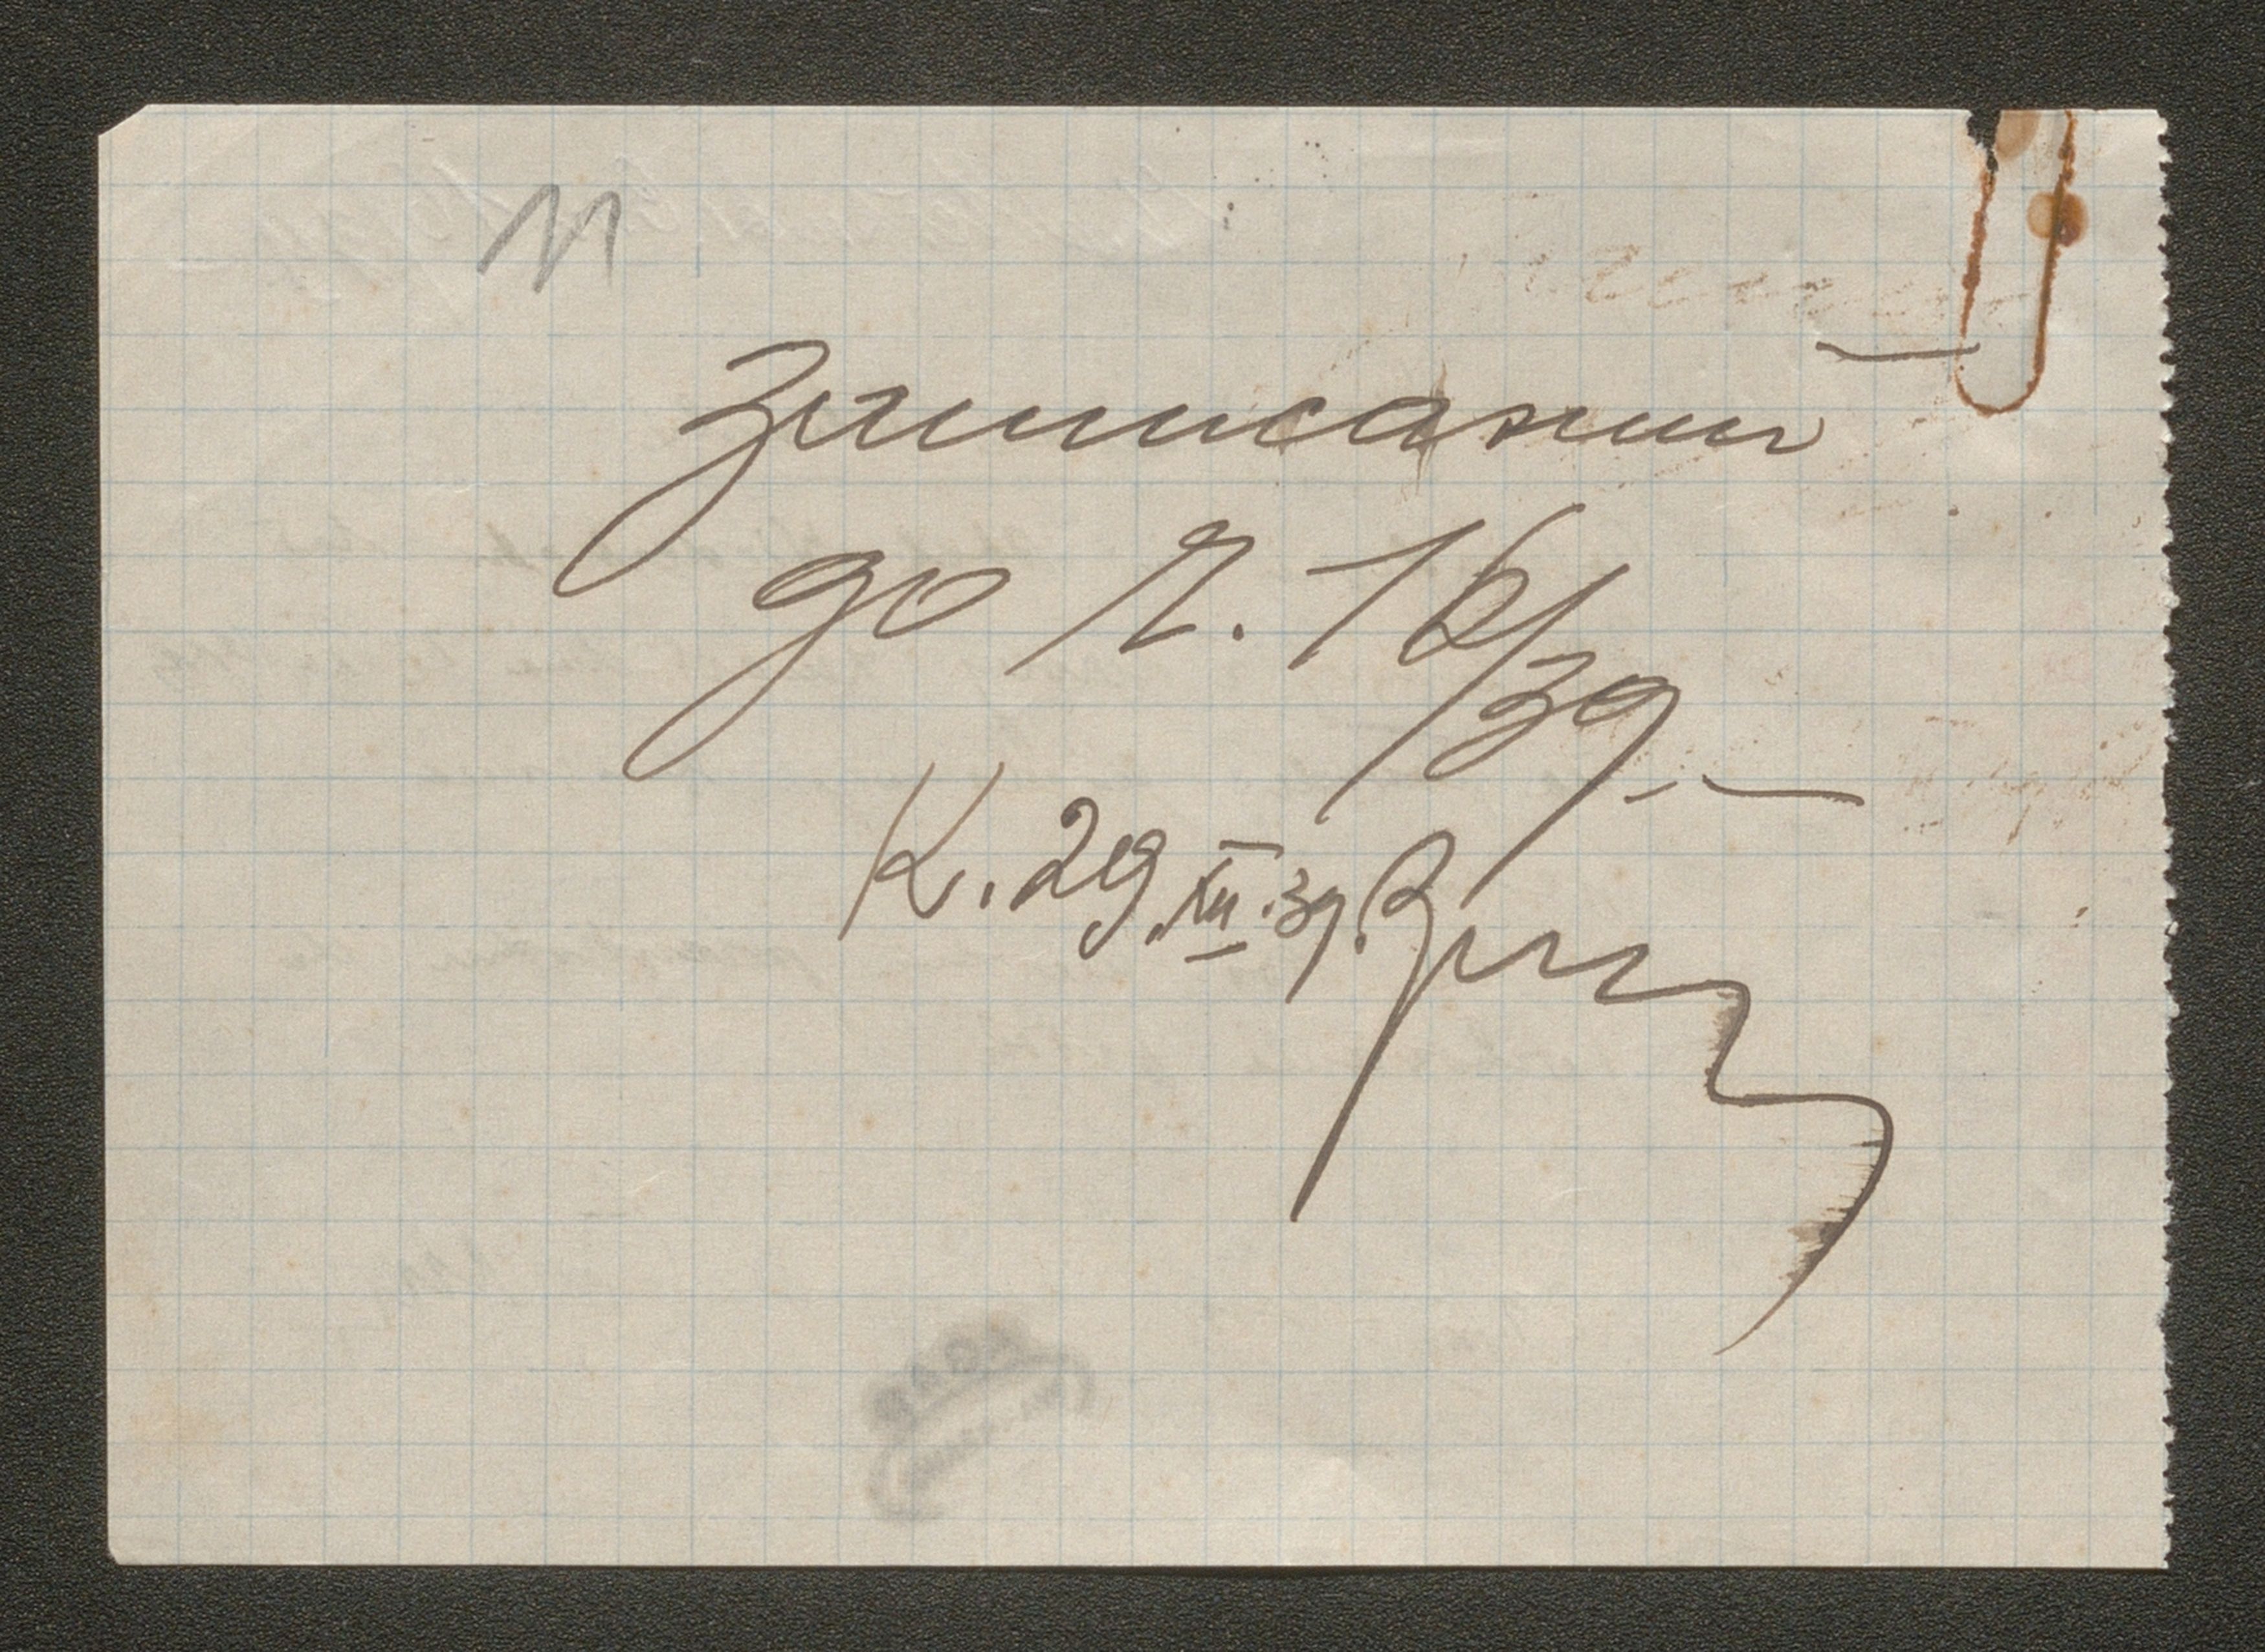 записаний
до Ч. 16/39.—
К. 29.XII.39.